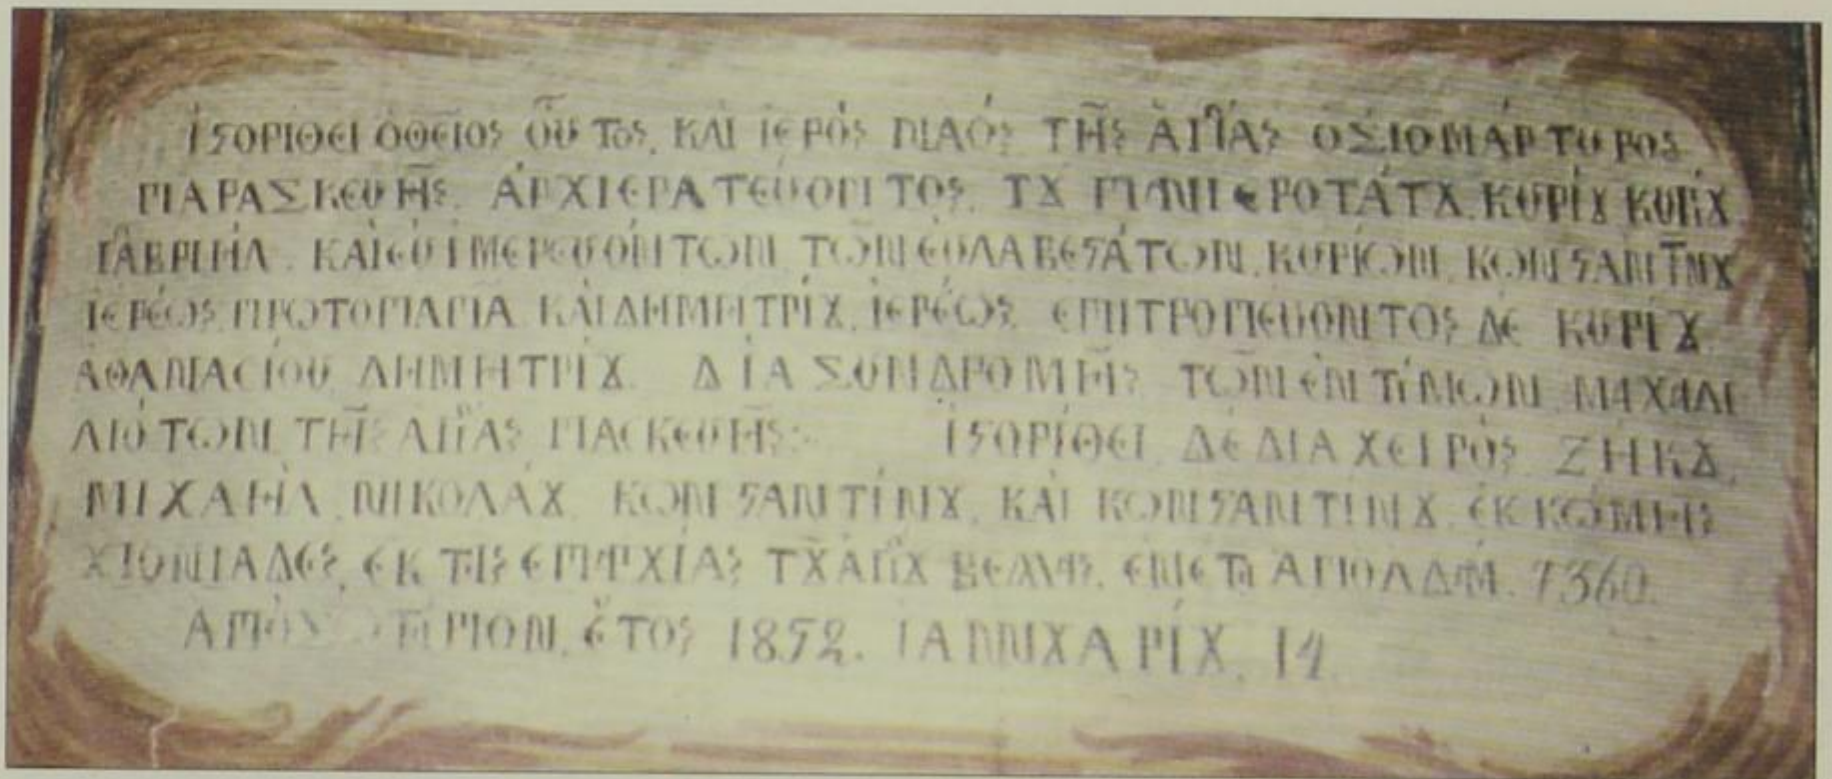 ἹϚΟΡΙΘΕΙ ὉΘΕῖΟς ΟὟΤΟς. ΚΑΙ ἹΕΡΌς ΝΑΌς ΤΗ͂ς ἉΓΊΑς ΟΣΙΟΜΆΡΤΥΡΟς
ΠΑΡΑΣΚΕΥΗ͂ς. ἈΡΧΙΕΡΑΤΕΎΟΝΤΟς. ΤȢ ΠΑΝΙΕΡΟΤΆΤȢ. ΚΥΡΊȢ ΚΥΡΊȢ
ΓΑΒΡΙΉΛ. ΚΑῚ ΕΥἹΜΕΡΕΥΌΝΤΩΝ ΤΩ͂Ν ΕΥΛΑΒΕϚΆΤΩΝ. ΚΥΡΊΩΝ. ΚΩΝϚΑΝΤΊΝȢ
ἹΕΡΈΩς ΠΡΩΤΟΠΑΠΑ͂ ΚΑῚ ΔΗΜΗΤΡΊȢ. ἹΕΡΈΩς. ΕΠΙΤΡΟΠΕΎΟΝΤΟς ΔΕ ΚΥΡΊȢ
ΑΘΑΝΑCΊΟΥ ΔΗΜΗΤΡΊȢ. ΔΊΑ ΣΥΝΔΡΟΜΗ͂ς ΤΩ͂Ν ἘΝΤΊΜΩΝ ΜΑΧΑΛΙ
ΛΙΌΤΩΝ ΤΗ͂ς ἉΓΊΑς ΠΑCΚΕΥΗ͂ς: ἹϚΟΡΊΘΕΙ ΔῈ ΔΙΑ ΧΕΙΡΌς ΖΉΚȢ,
ΜΙΧΑΗΛ ΝΙΚΟΛΆȢ. ΚΩΝϚΑΝΤΊΝȢ. ΚΑῚ ΚΩΝϚΑΝΤΊΝȢ. ἘΚ ΚΌΜΗς
ΧΙΟΝΙΆΔΕς. ἘΚ ΤΗς ΕΠΑΡΧΊΑς ΤȢ͂ ἉΓΊȢ ἘΝ ἜΤΗ ΑΠΟ ΑΔΆΜ. 7360.
ΑΠῸ ΤΉΡΙΟΝ. ἜΤΟς 1852. ΙΑΝΝȢΑΡΊȢ. 14.